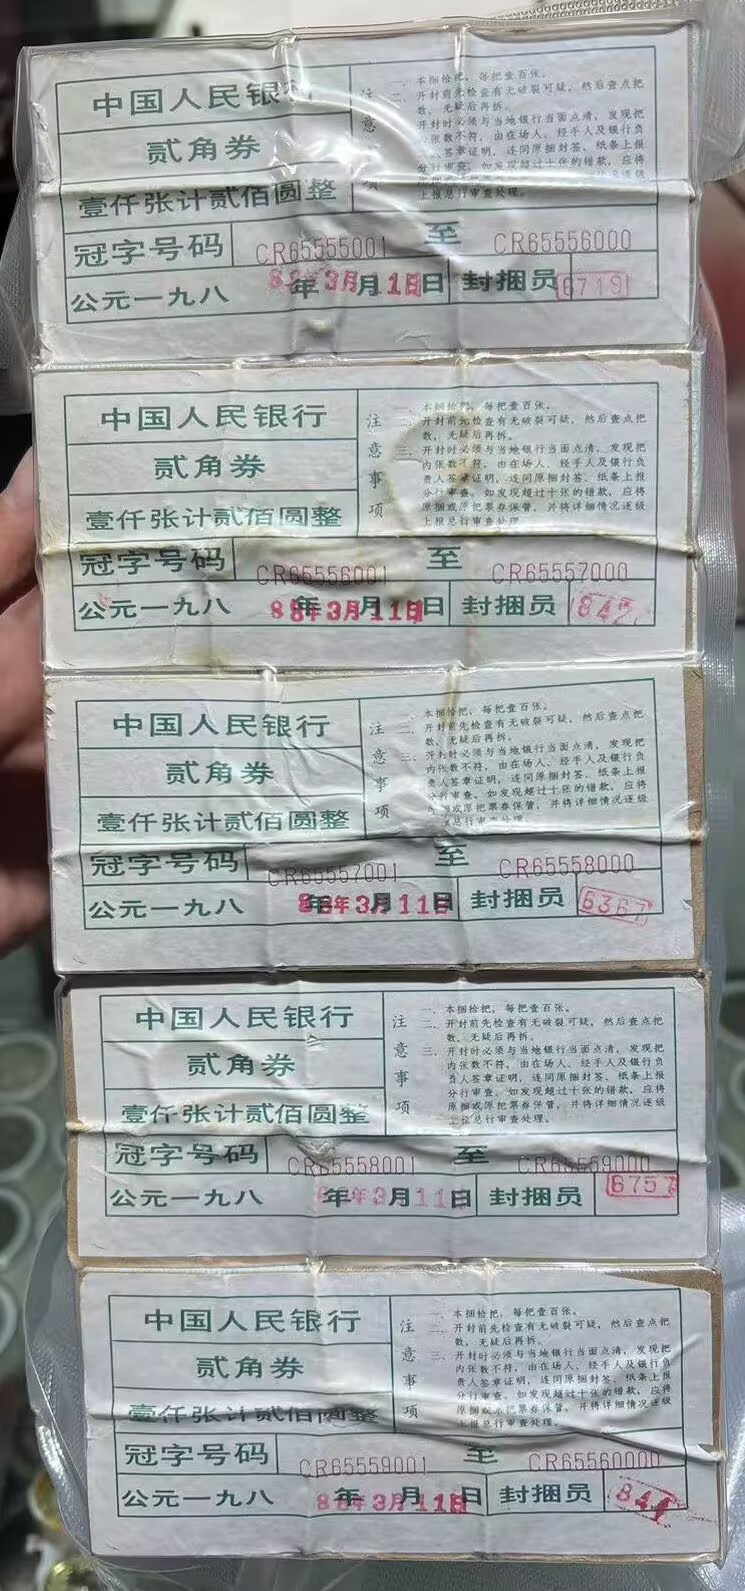 中国人民银行
贰角券
壹仟张计贰佰圆整
注意事项
一、本捆恰把，每把壹百张。
二、开封前先检查有无破裂可疑，然后查点把
数，无疑后再拆。
开封时必须与当地银行当面点清，发现把
张数不符，由在场人、经手人及银行负
人签章证明，连同原捆封签、纸条上报
分行审查。如发现超过十张的错款，应将
上报总行审查处理。
冠字号码 CR65555001 至 CR65556000
公元一九八 年3月 月11日 日 封捆员 6719
中国人民银行
贰角券
壹仟张计贰佰圆整
注意事项
本捆拾把，每把壹百张。
二、开封前先检查有无破裂可疑，然后查点把
数，无疑后再拆。
三、开封时必须与当地银行当面点清，发现把
内张数不符，由在场人、经手人及银行负
责人签章证明，连同原捆封签、纸条上报
分行审查。如发现超过十张的错款，应将
原捆或原把票券保管，并将详细情况逐级
上报总行审查处理
冠字号码 CR65556001 至 CR65557000
公元一九八 88年3月11日 年 月 日 封捆员 842
中国人民银行
贰角券
壹仟张计贰佰圆整
注意事项
一、本捆拾把，每把壹百张。
二、开封前先检查有无破裂可疑，然后查点把
数，无疑后再拆。
三、开封时必须与当地银行当面点清，发现把
内张数不符，由在场人、经手人及银行负
责人签章证明，连同原捆封签、纸条上报
分行审查。如发现超过十张的错款，应将
捆或原把票券保管，并将详细情况逐级
报总行审查处理
冠字号码 CR65557001 至 CR65558000
公元一九八 88年3月11日 年 月 日 封捆员 6367
中国人民银行
贰角券
壹仟张计贰佰圆整
注意事项
一、本捆拾把，每把壹百张。
二、开封前先检查有无破裂可疑，然后查点把
数，无疑后再拆。
三、开封时必须与当地银行当面点清，发现把
内张数不符，由在场人、经手人及银行负
责人签章证明，连同原捆封签、纸条上报
分行审查。如发现超过十张的错款，应将
原捆或原把票券保管，并将详细情况逐级
上报总行审查处理。
冠字号码 CR65558001 至 CR65559000
公元一九八 年3月11日 年 月 日 封捆员 6757
中国人民银行
贰角券
壹仟张计贰佰圆整
注意事项
一、本捆拾把，每把壹百张。
二、开封前先检查有无破裂可疑，然后查点把
数，无疑后再拆。
三、开封时必须与当地银行当面点清，发现把
内张数不符，由在场人、经手人及银行负
责人签章证明，连同原捆封签、纸条上报
分行审查。如发现超过十张的错款，应将
原捆或原把票券保管，并将详细情况逐级
上报总行审查处理。
冠字号码 CR65559001 至 CR65560000
公元一九八 88年3月11日 年 月 日 封捆员 844